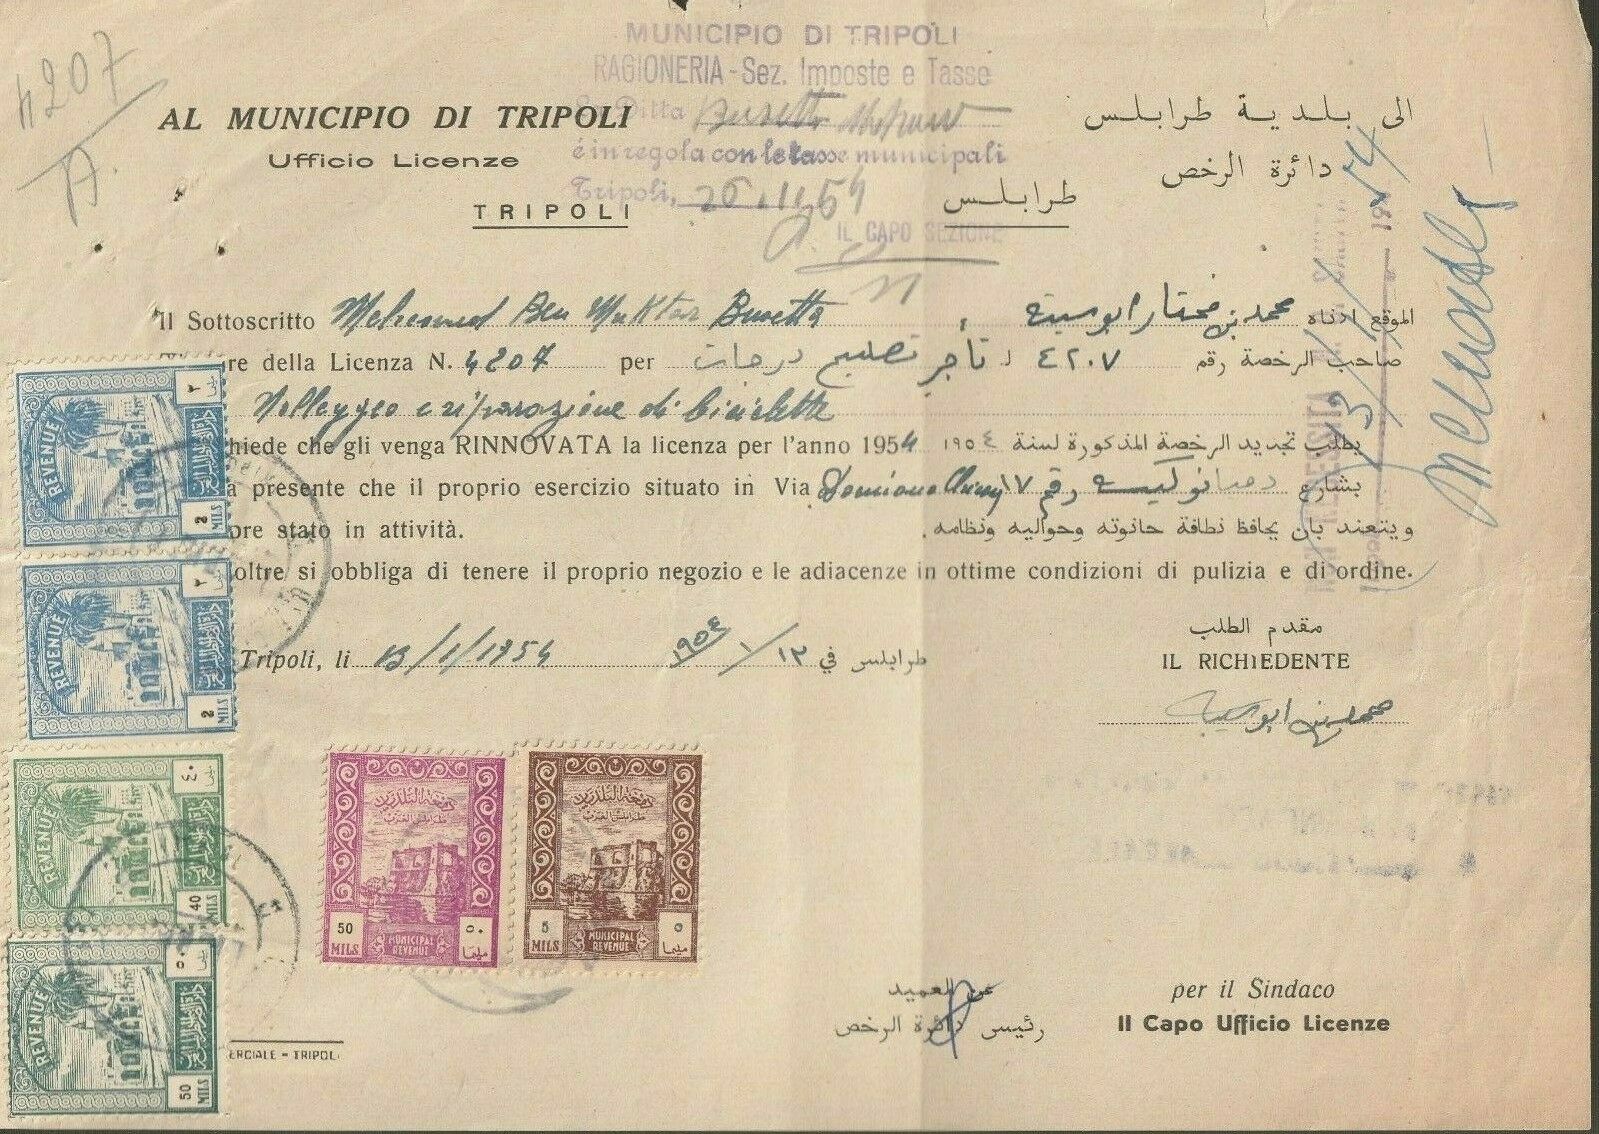 4207
MUNICIPIO DI TRIPOLI
RAGIONERIA - Sez. Imposte e Tasse
La Ditta Busetta
é in regola con le tasse municipali
Tripoli,
IL CAPO SEZIONE
AL MUNICIPIO DI TRIPOLI
Ufficio Licenze
TRIPOLI
الى بلدية طرابلس
دائرة الرخص
طرابلس
Il Sottoscritto Mohamed Ben Muktar Busetta
الموقع ادناه محمد بن مختار ابوسيته
re della Licenza N. 4207 per
صاحب الرخصة رقم ٤٢٠٧ لـ تاجر تصليح درجات
Nolleggeo e riparazione di biciclette
hiede che gli venga RINNOVATA la licenza per l'anno 1954
يطلب تجديد الرخصة المذكورة لسنة ١٩٥٤
a presente che il proprio esercizio situato in Via Damiano
بشارع رقم ١٧
ore stato in attività.
ويتعند بان يحافظ نطافة حانوته وحواليه ونظامه.
oltre si obbliga di tenere il proprio negozio e le adiacenze in ottime condizioni di pulizia e di ordine.
Tripoli, li 13/1/1954
طرابلس في ١٣/١/١٩٥٤
مقدم الطلب
IL RICHIEDENTE
محمد بن ابوسيته
REVENUE
2 MILS
٢
REVENUE
2 MILS
٢
REVENUE
40 MILS
٤٠
REVENUE
50 MILS
٥٠
دمغة البلدية
طرابلس الغرب
50 MILS
MUNICIPAL REVENUE
٥٠ مليما
دمغة البلدية
طرابلس الغرب
5 MILS
MUNICIPAL REVENUE
٥ مليما
عن العميد
رئيس دائرة الرخص
per il Sindaco
Il Capo Ufficio Licenze
ERCIALE - TRIPOLI